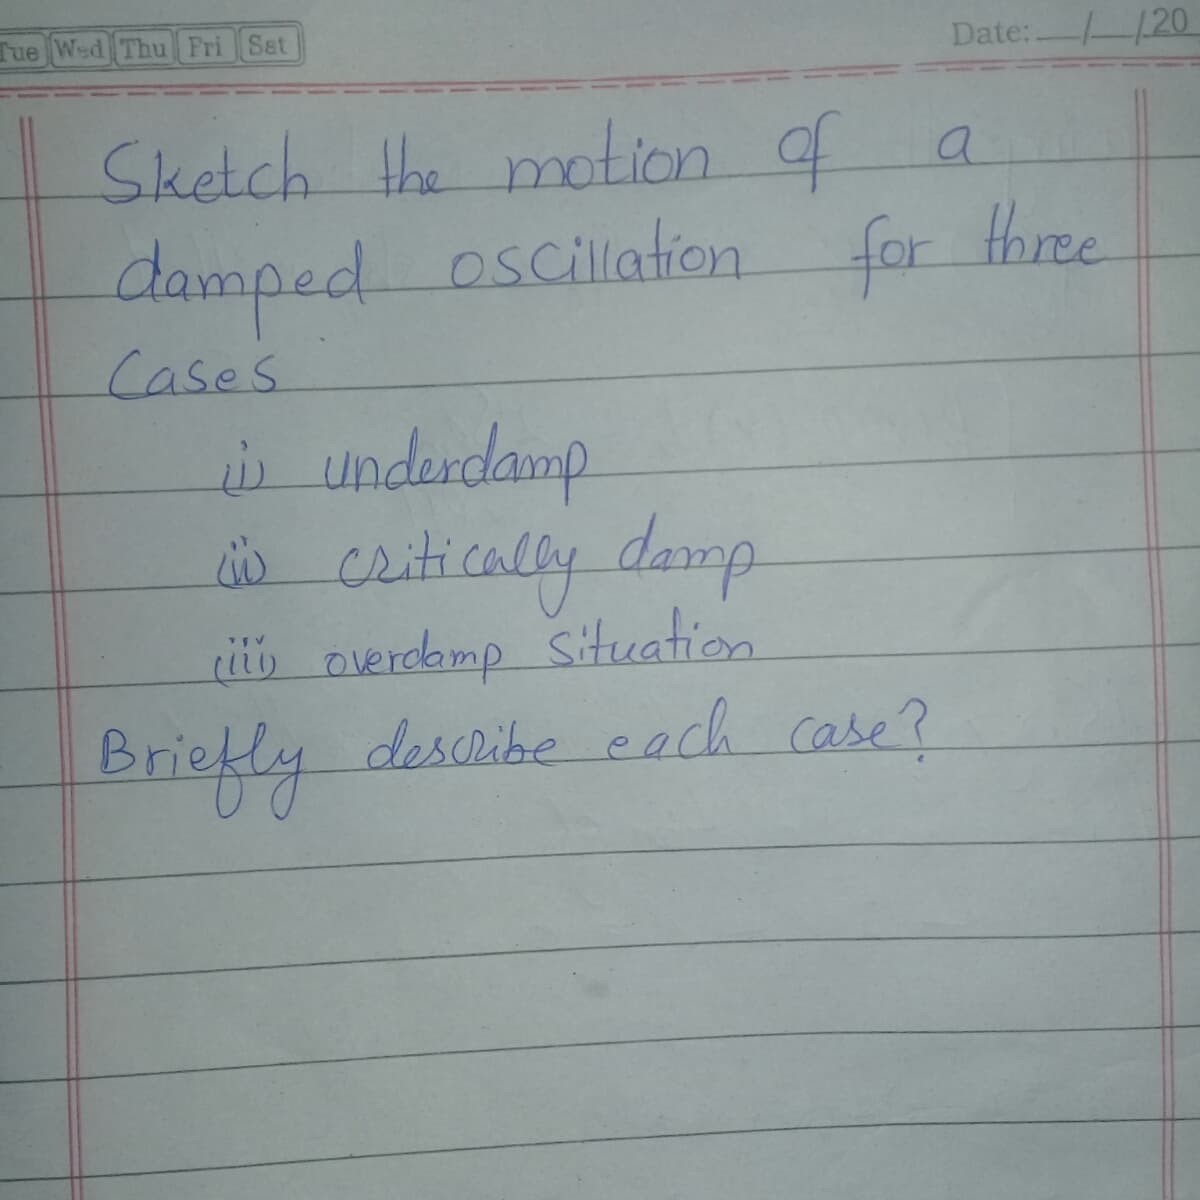 Tue Wed Thu Fri Sat Date: __/__/20
Sketch the motion of a
damped oscillation for three
Cases
(i) underdamp
(ii) critically damp
(iii) overdamp situation
Briefly describe each case?